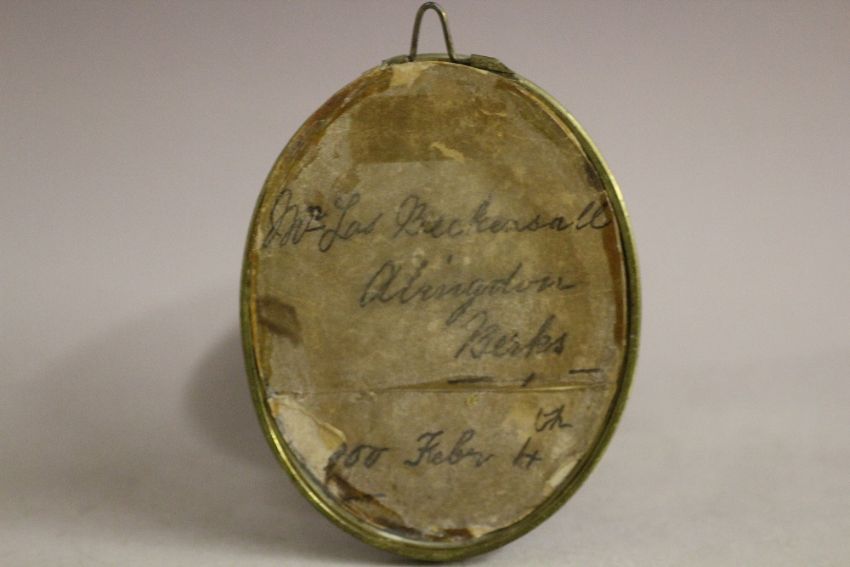 Mr Jas Beckensall
Abingdon
Berks
Febr 4th